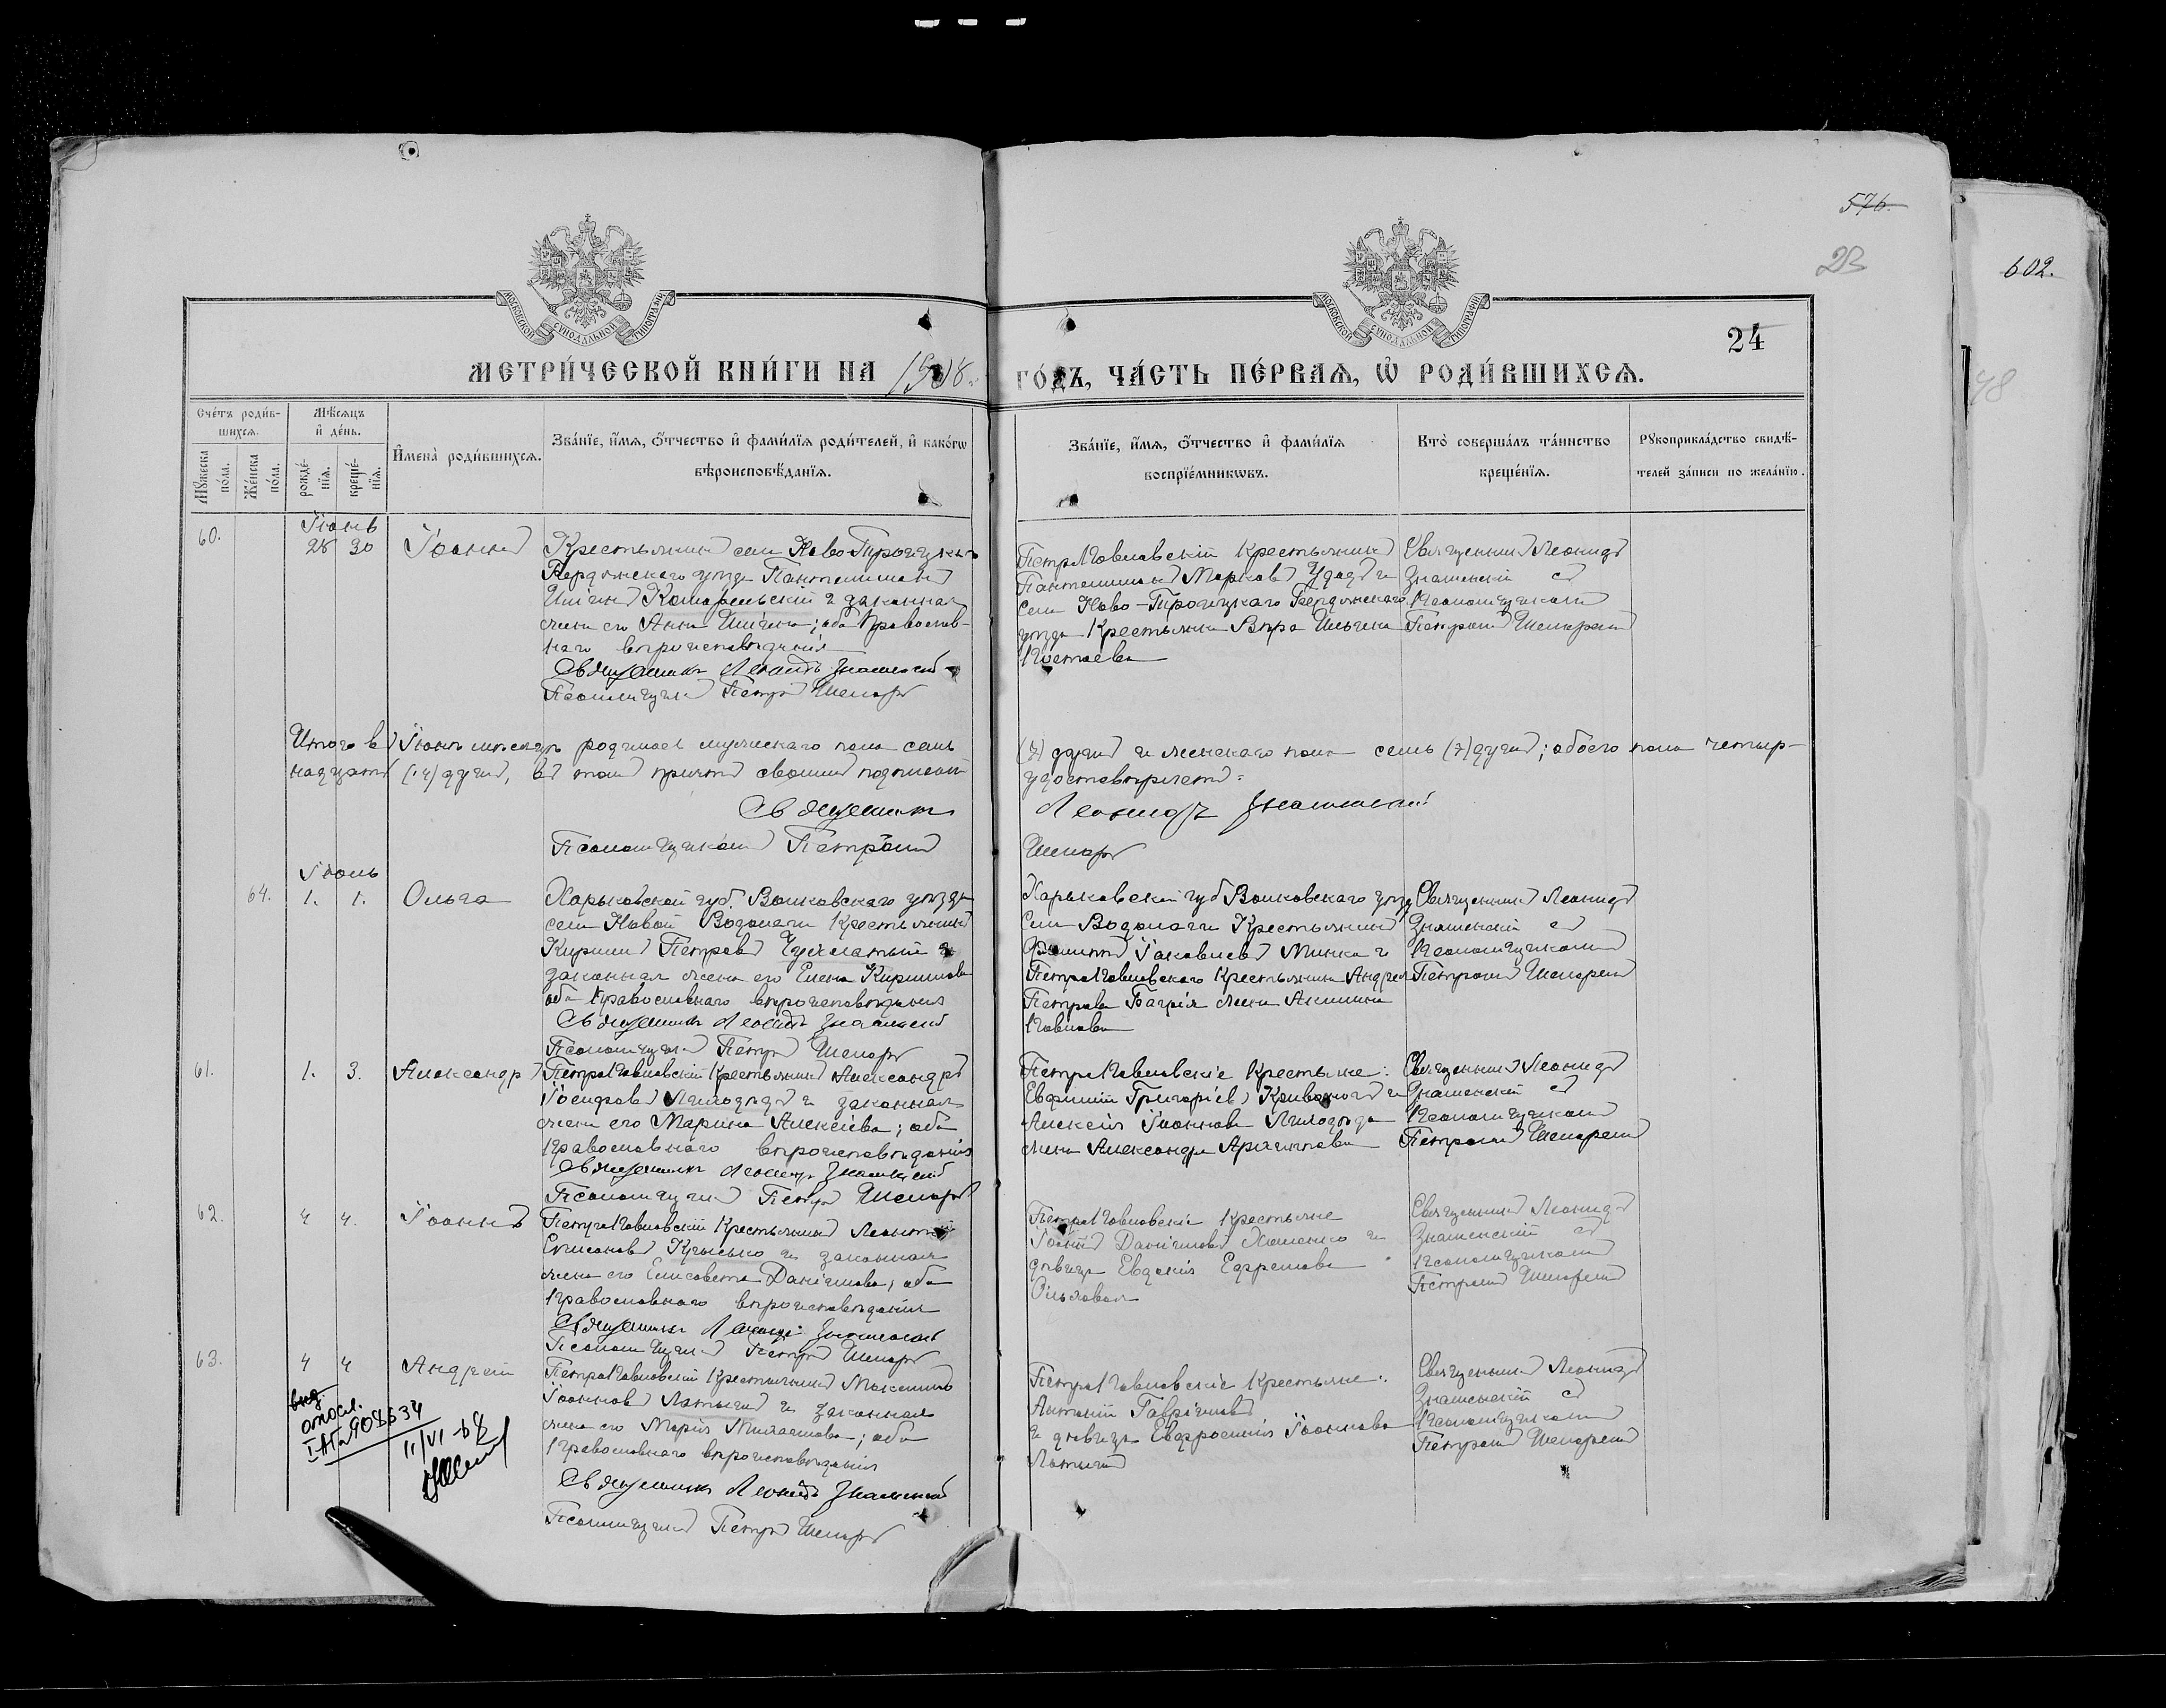 576.
23
602.
48
24
МОСКОВСКОЙ СѴНОДАЛЬНОЙ ТИПОГРАФІИ
МОСКОВСКОЙ СѴНОДАЛЬНОЙ ТИПОГРАФІИ
МЕТРИ́ЧЕСКОЙ КНИ́ГИ НА 1908. ГО́ДЪ, ЧА́СТЬ ПЕ́РВАѦ, Ѽ РОДИ́ВШИХСѦ.
Сче́тъ роди́в-
шихсѧ.
Мꙋ́жеска по́ла.
Же́нска по́ла.
Мѣ́сѧцъ
и҆ де́нь.
рожде́-
нїѧ.
креще́-
нїѧ.
И҆мена̀ роди́вшихсѧ.
Зва́нїе, и҆́мѧ, ѻ҆́тчество и҆ фами́лїѧ роди́телей, и҆ како́гѡ
вѣроисповѣ́данїѧ.
Зва́нїе, и҆́мѧ, ѻ҆́тчество и҆ фами́лїѧ
воспрїе́мникѡвъ.
Кто̀ соверша́лъ та́инство
креще́нїѧ.
Рꙋкоприкла́дство свидѣ́-
телей за́писи по жела́нїю.
60.
Іюнь
28 30
Іоаннъ
Крестьянинъ села Ново-Троицкаго
Бердянскаго уѣзда Пантелеимонъ
Иліинъ и законная
жена его Анна Иліина; оба Православ-
наго вѣроисповѣданія
Священникъ Леонидъ Знаменскій
Псаломщикъ Петръ Шепарь
Петропавловскій крестьянинъ
Пантелеимонъ Марковъ Удодъ и
села Ново-Троицкаго Бердянскаго
уѣзда крестьянка Вѣра Ильина
Священникъ Леонидъ
Знаменскій съ
псаломщикомъ
Петромъ Шепаремъ
Итого въ Іюнѣ мѣсяцѣ родилось мужескаго пола семь (7) душъ и женскаго пола семь (7) душъ; обоего пола четыр-
надцать (14) душъ, въ томъ причтъ своимъ подписомъ удостовѣряетъ:
Священникъ Леонидъ Знаменскій
Псаломщикомъ Петромъ Шепарь
64.
Іюль
1. 1.
Ольга
Харьковской губ. Валковскаго уѣзда
села Новой Водолаги крестьянинъ
Кирилл Петровъ и
законная жена его Елена Кириллова
оба православнаго вѣроисповѣданія
Священникъ Леонидъ Знаменскій
Псаломщикъ Петръ Шепарь
Харьковской губ Валковскаго уѣзда
села Водолаги крестьянинъ
Филиппъ Іаковлевъ Минка и
Петропавловскаго крестьянина Андрея
Петрова Багрія жена Акилина
Павлова
Священникъ Леонидъ
Знаменскій съ
псаломщикомъ
Петромъ Шепаремъ
61.
1. 3.
Александръ
Петропавловскій крестьянинъ Александръ
Іосифовъ и законная
жена его Марина Алексіева; оба
православнаго вѣроисповѣданія
Священникъ Леонидъ Знаменскій
Псаломщикъ Петръ Шепарь
Петропавловскіе крестьяне:
Евфимій Григоріевъ Кривоногъ и
Алексія Іоаннова
жена Александра
Священникъ Леонидъ
Знаменскій съ
псаломщикомъ
Петромъ Шепаремъ
62.
4 4.
Іоаннъ
Петропавловскій крестьянинъ Леонтій
и законная
жена его Елисавета Даніилова, оба
православнаго вѣроисповѣданія
Священникъ Леонидъ Знаменскій
Псаломщикъ Петръ Шепарь
Петропавловскіе крестьяне
Іоаннъ Даніиловъ и
дѣвица Евдокія Ефремова
Священникъ Леонидъ
Знаменскій съ
псаломщикомъ
Петромъ Шепаремъ
63.
4 4
Андрей
Петропавловскій крестьянинъ Максимъ
Іоанновъ Латышъ и законная
жена его Марія Михаилова; оба
православнаго вѣроисповѣданія
Священникъ Леонидъ Знаменскій
Псаломщикъ Петръ Шепарь
Петропавловскіе крестьяне:
Антоній Гавріиловъ
и дѣвица Евфросинія Іоаннова
Латышъ
Священникъ Леонидъ
Знаменскій съ
псаломщикомъ
Петромъ Шепаремъ
908634
11/VI-68